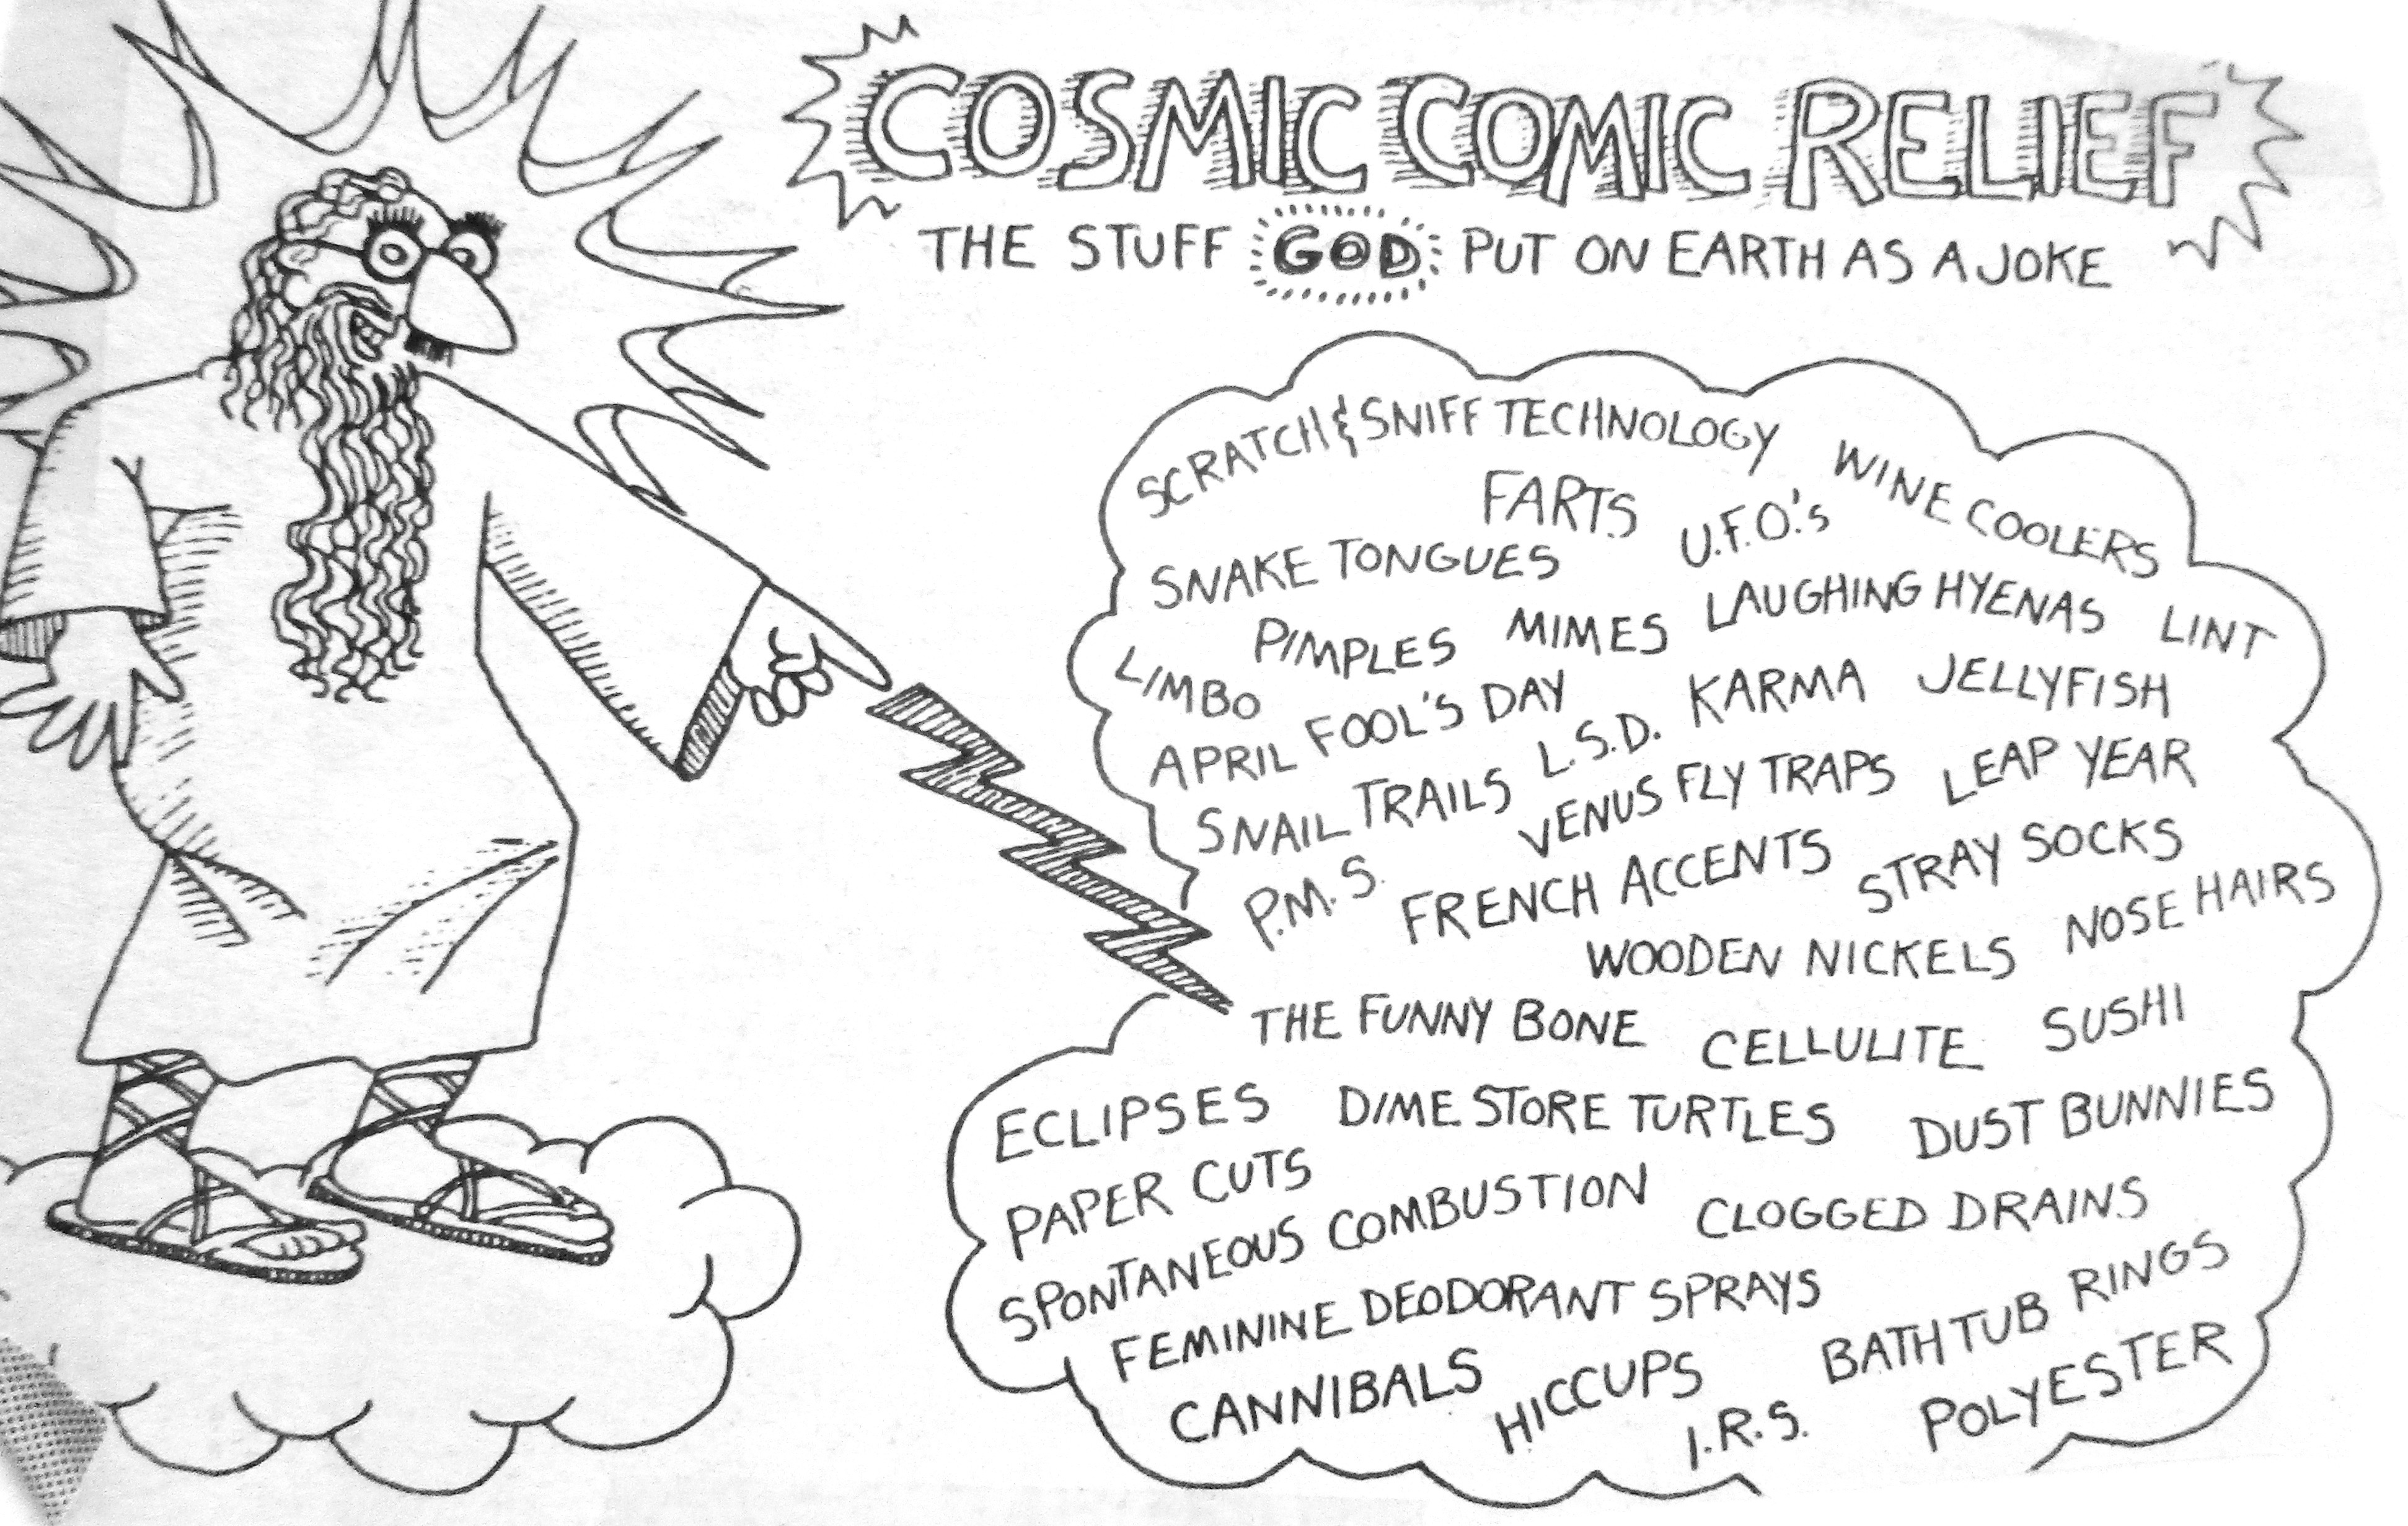 COSMIC COMIC RELIEF
THE STUFF GOD PUT ON EARTH AS A JOKE
SCRATCH & SNIFF TECHNOLOGY
WINE COOLERS
FARTS
U.F.O.'s
SNAKE TONGUES
LAUGHING HYENAS
LINT
PIMPLES
MIMES
LIMBO
APRIL FOOL'S DAY
KARMA
JELLYFISH
L.S.D.
SNAIL TRAILS
VENUS FLY TRAPS
LEAP YEAR
P.M.S.
FRENCH ACCENTS
STRAY SOCKS
WOODEN NICKELS
NOSE HAIRS
THE FUNNY BONE
CELLULITE
SUSHI
ECLIPSES
DIME STORE TURTLES
DUST BUNNIES
PAPER CUTS
SPONTANEOUS COMBUSTION
CLOGGED DRAINS
FEMININE DEODORANT SPRAYS
BATHTUB RINGS
CANNIBALS
HICCUPS
I.R.S.
POLYESTER